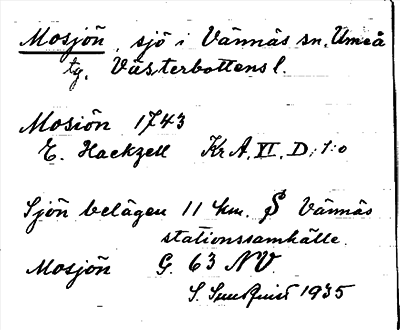 Mosjön, sjö i Vännäs sn, Umeå
tg, Västerbottens l.
Mosiön 1743
E. Hackzell Kr A. VI. D. 1:o
Sjön belägen 11 km. S Vännäs
stationssamhälle.
Mosjön G. 63 NV.
S. 1935